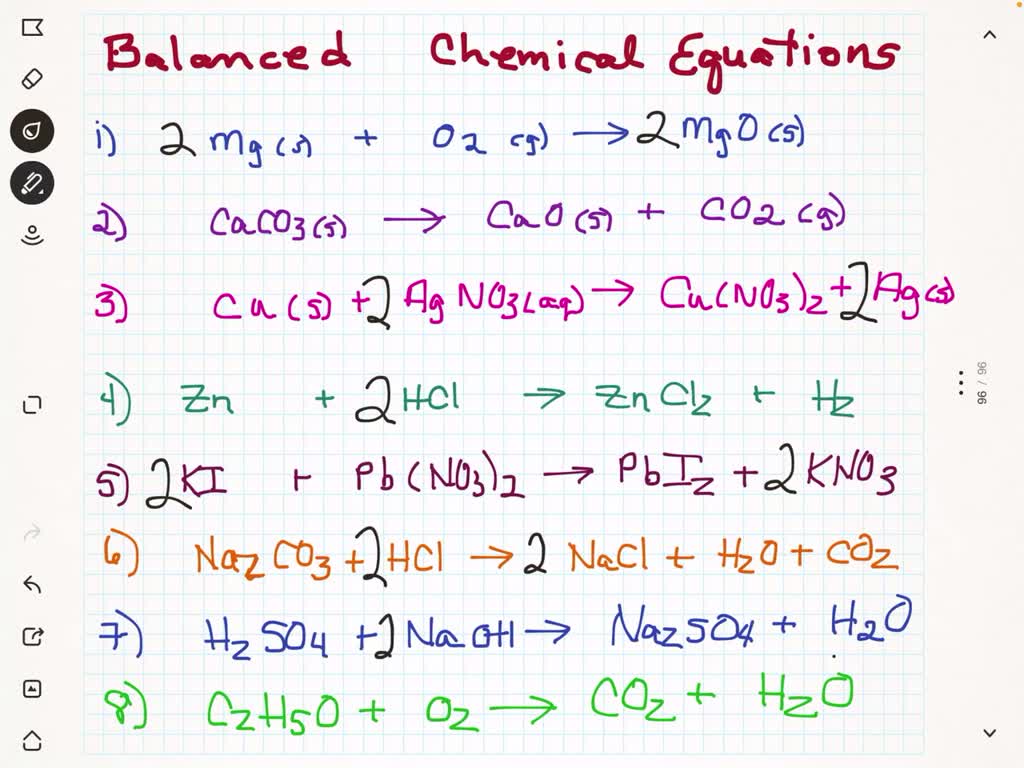 Balanced Chemical Equations
1) 2 Mg (s) + O2 (g) → 2 MgO (s)
2) CaCO3 (s) → CaO (s) + CO2 (g)
3) Cu (s) + 2 AgNO3 (aq) → Cu(NO3)2 + 2 Ag (s)
96 / 96
4) Zn + 2 HCl → ZnCl2 + H2
5) 2KI + Pb(NO3)2 → PbI2 + 2 KNO3
6) Na2CO3 + 2HCl → 2 NaCl + H2O + CO2
7) H2SO4 + 2NaOH → Na2SO4 + H2O
8) C2H5O + O2 → CO2 + H2O